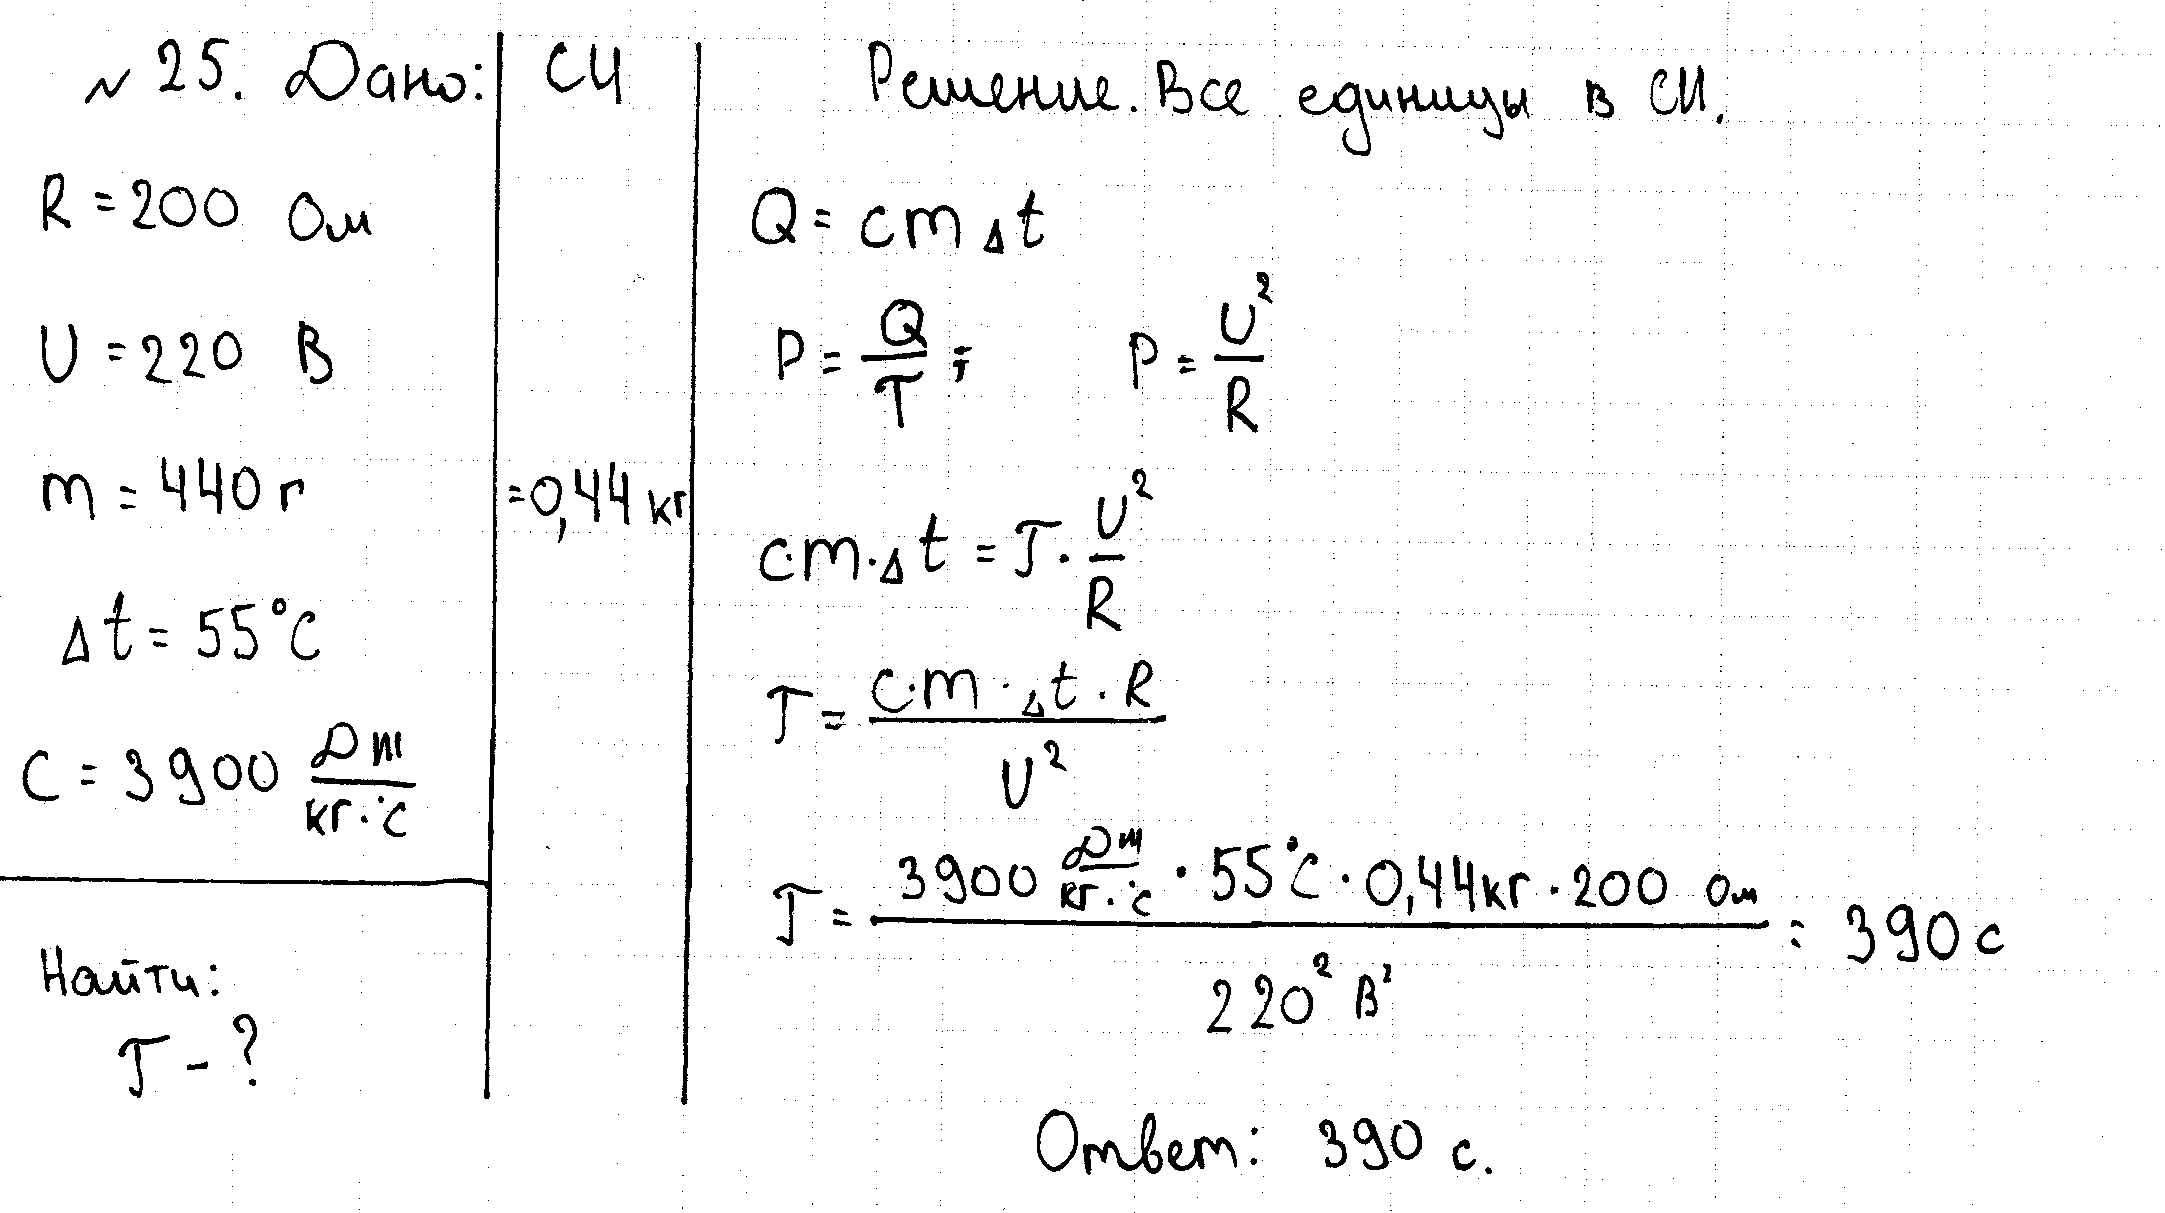 № 25. Дано:
R = 200 Ом
U = 220 В
m = 440 г
Δt = 55°C
C = 3900 Дж/кг·°C
Найти:
T - ?
СИ
= 0,44 кг
Решение. Все единицы в СИ.
Q = cmΔt
P = Q/T ; P = U²/R
c·m·Δt = T · U²/R
T = c·m·Δt·R / U²
T = 3900 Дж/кг·°C · 55°C · 0,44 кг · 200 Ом / 220² В² = 390 с
Ответ: 390 с.